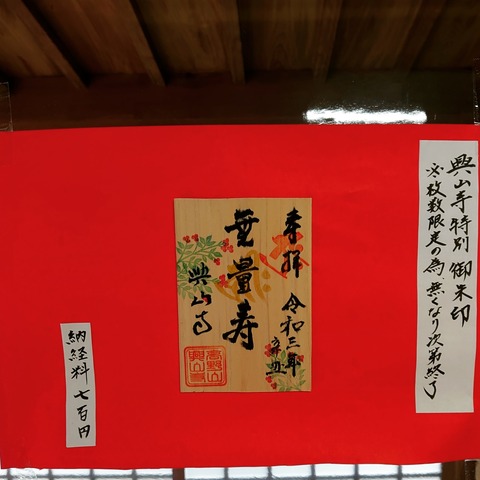 興山寺特別御朱印
※枚数限定の為、無くなり次第終了
奉拝 令和三年
辛丑
無量寿
興山寺
高野山
興山寺
納経料 七百円